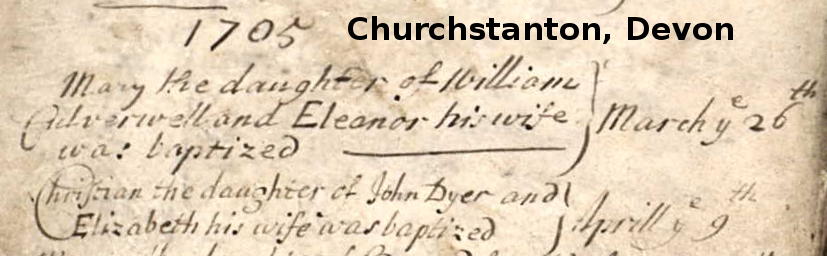 1705 Churchstanton, Devon
Mary the daughter of William
Culverwell and Eleanor his wife } March yᵉ 26ᵗʰ
was baptized
Christian the daughter of John Dyer and
Elizabeth his wife was baptized } Aprill yᵉ 9ᵗʰ